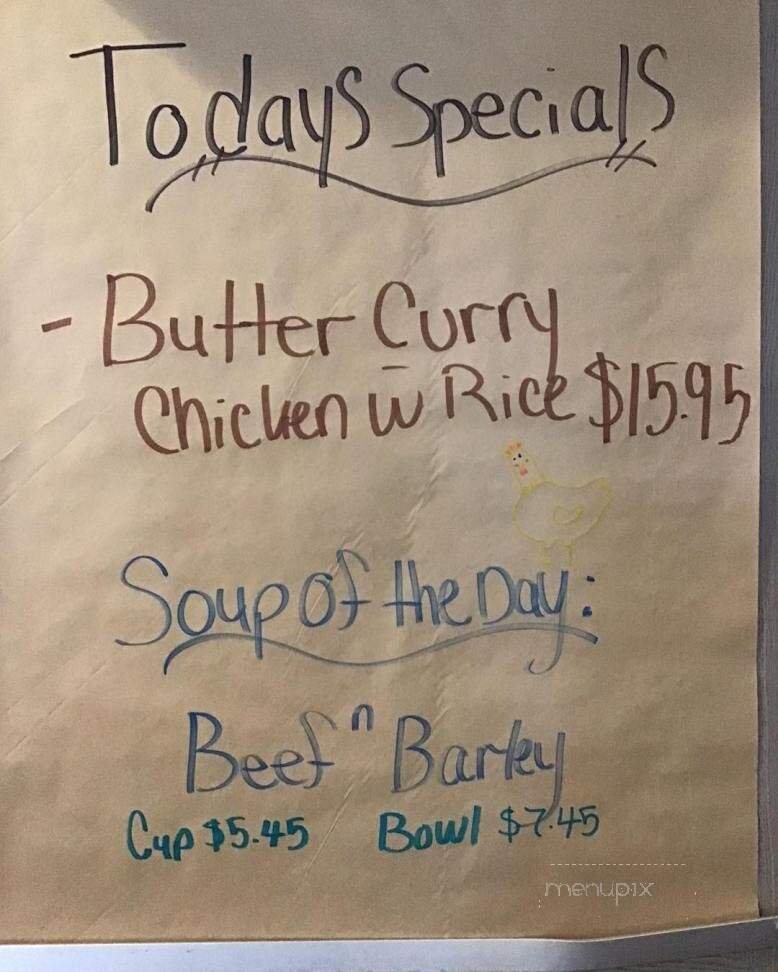 Todays Specials
- Butter Curry
Chicken w Rice $15.95
Soup of the Day:
Beef "n" Barley
Cup $5.45 Bowl $7.45
menupix